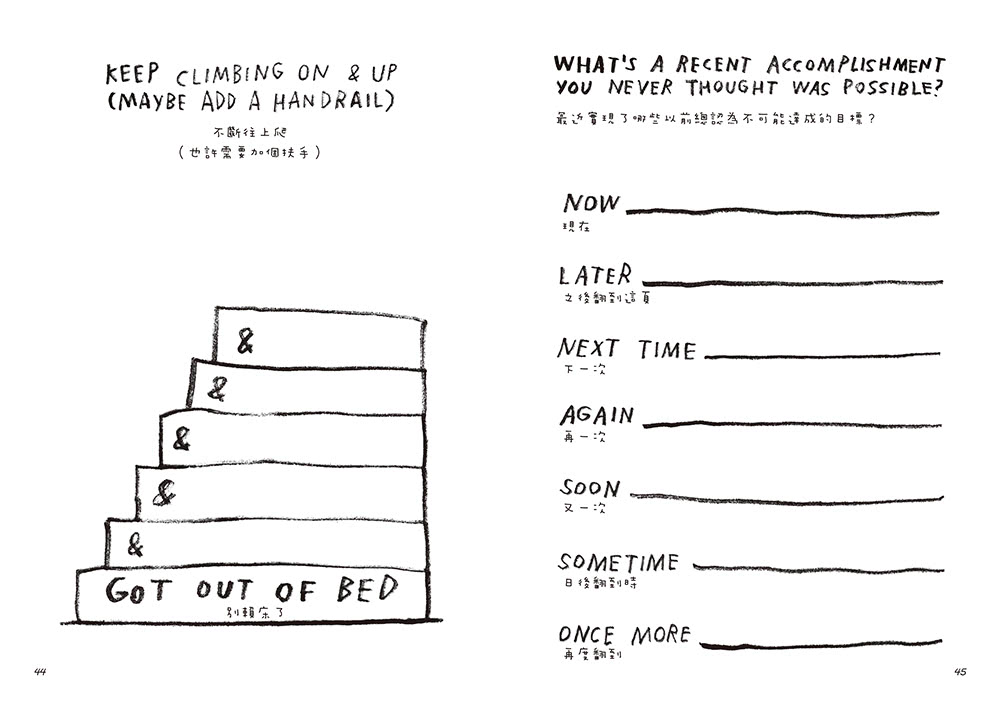 KEEP CLIMBING ON & UP
(MAYBE ADD A HANDRAIL)
不斷往上爬
(也許需要加個扶手)
&
&
&
&
&
GOT OUT OF BED
別賴床了
44
WHAT'S A RECENT ACCOMPLISHMENT
YOU NEVER THOUGHT WAS POSSIBLE?
最近實現了哪些以前總認為不可能達成的目標?
NOW
現在
LATER
之後翻到這頁
NEXT TIME
下一次
AGAIN
再一次
SOON
又一次
SOMETIME
日後翻到時
ONCE MORE
再度翻到
45